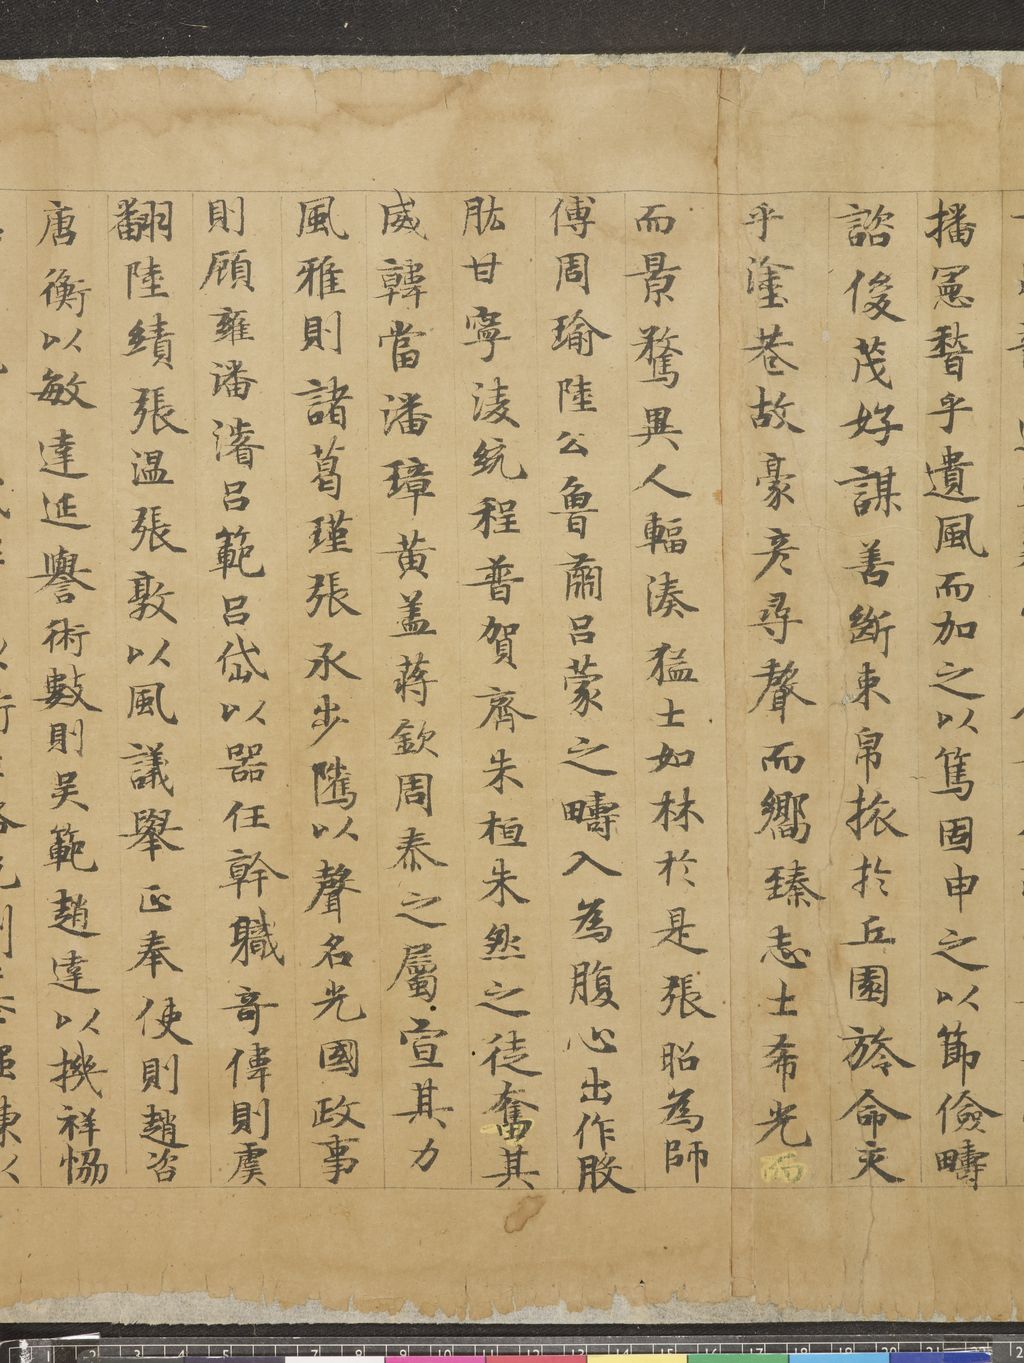 播憲稽乎遺風而加之以篤固申之以節儉疇
諮俊茂好謀善斷束帛旅於丘園旌命交
乎塗巷故豪彦尋聲而嚮臻志士希光而
而景騖異人輻湊猛士如林於是張昭為師
傅周瑜陸公魯肅吕蒙之疇入為腹心出作股
肱甘寧淩統程普賀齊朱桓朱然之徒奮其
威韓當潘璋黄盖蒋欽周泰之屬宣其力
風雅則諸葛瑾張承步隲以聲名光國政事
則顧雍潘濬吕範吕岱以器任幹職奇偉則虞
翻陸績張温張敦以風議舉正奉使則趙咨
唐衡以敏達延譽術數則吴範趙達以機祥恊